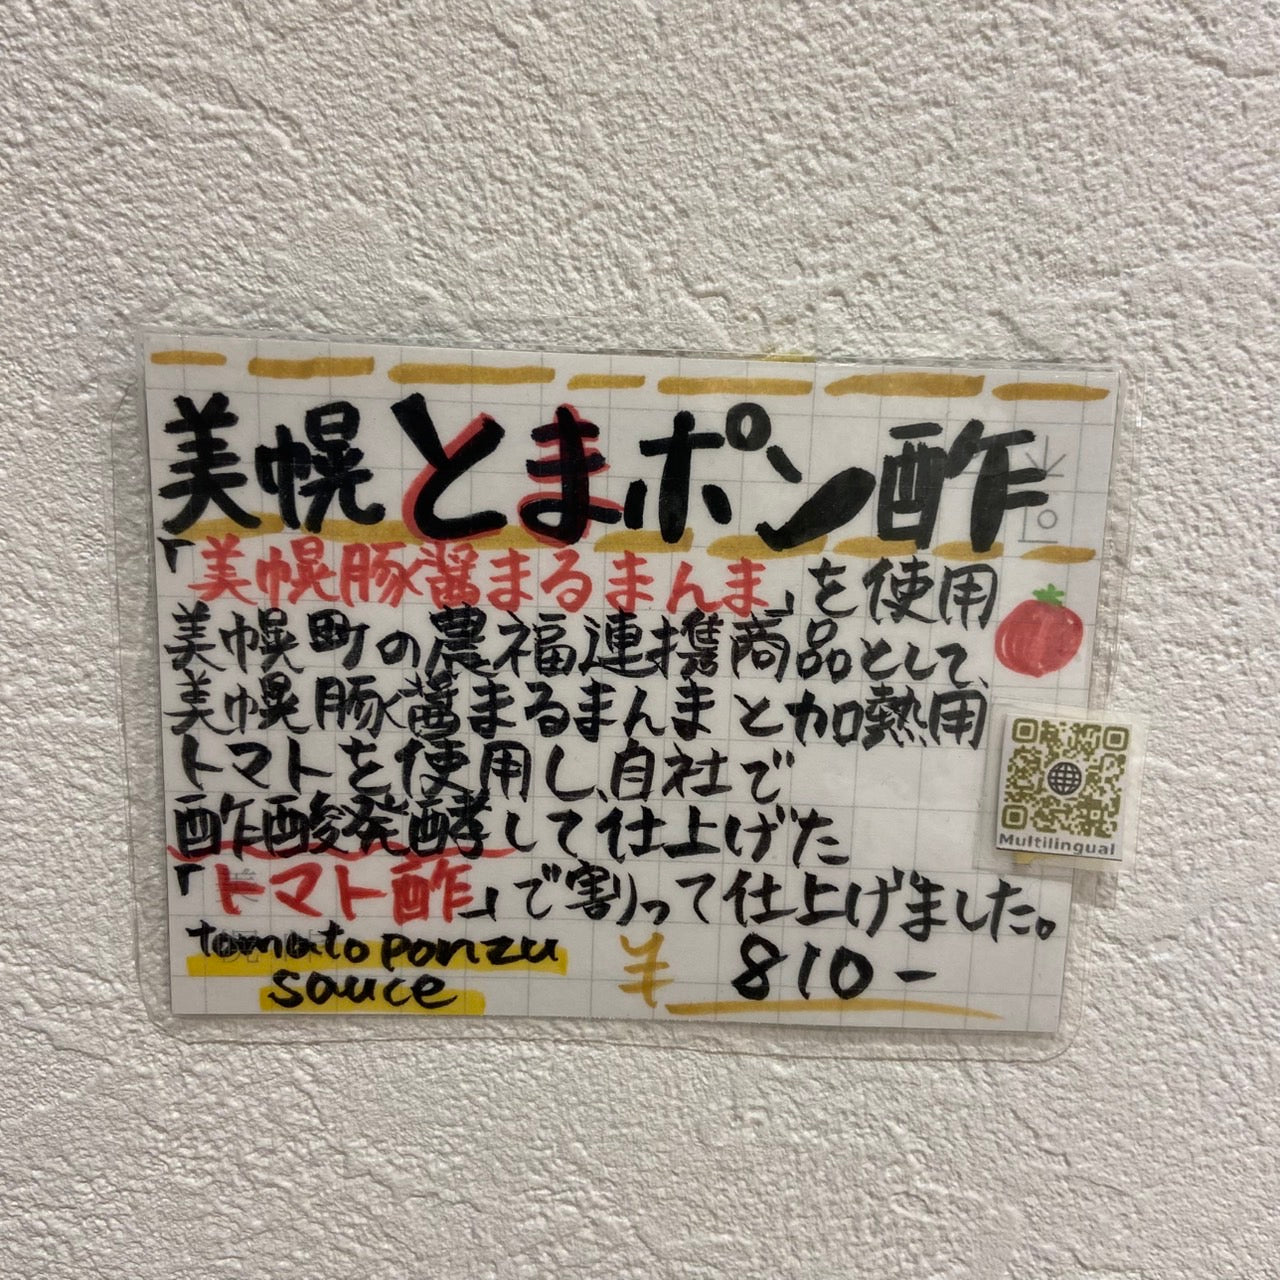 美幌とまポン酢
「美幌豚醤まるまんま」を使用
美幌町の農福連携商品として、
美幌豚醤まるまんまと加熱用
トマトを使用し、自社で
酢酸発酵して仕上げた
「トマト酢」で割って仕上げました。
tomato ponzu
sauce
¥810-
Multilingual